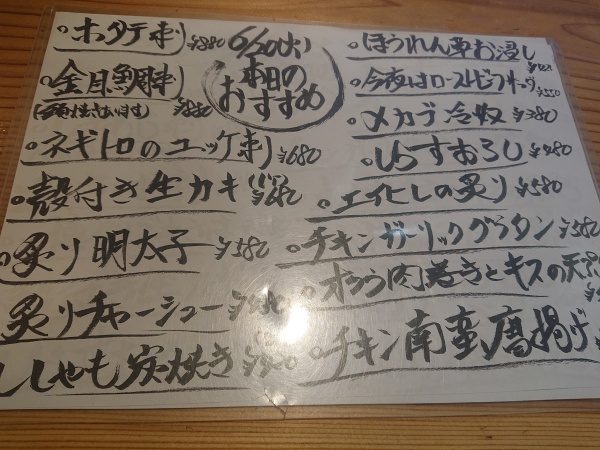 6/20(火)
本日の
おすすめ
ホタテ刺 ¥880
金目鯛刺 ¥880
ネギトロのユッケ刺 ¥680
殻付き生カキ
炙り明太子 ¥580
炙りチャーシュー
ししゃも炭焼き
ほうれん草お浸し
今夜はローストビーフ
メカブ冷奴 ¥380
しらすおろし ¥280
エイヒレの炙り ¥580
チキンガーリックグラタン ¥580
オクラ肉巻きとキスの天
チキン南蛮唐揚げ